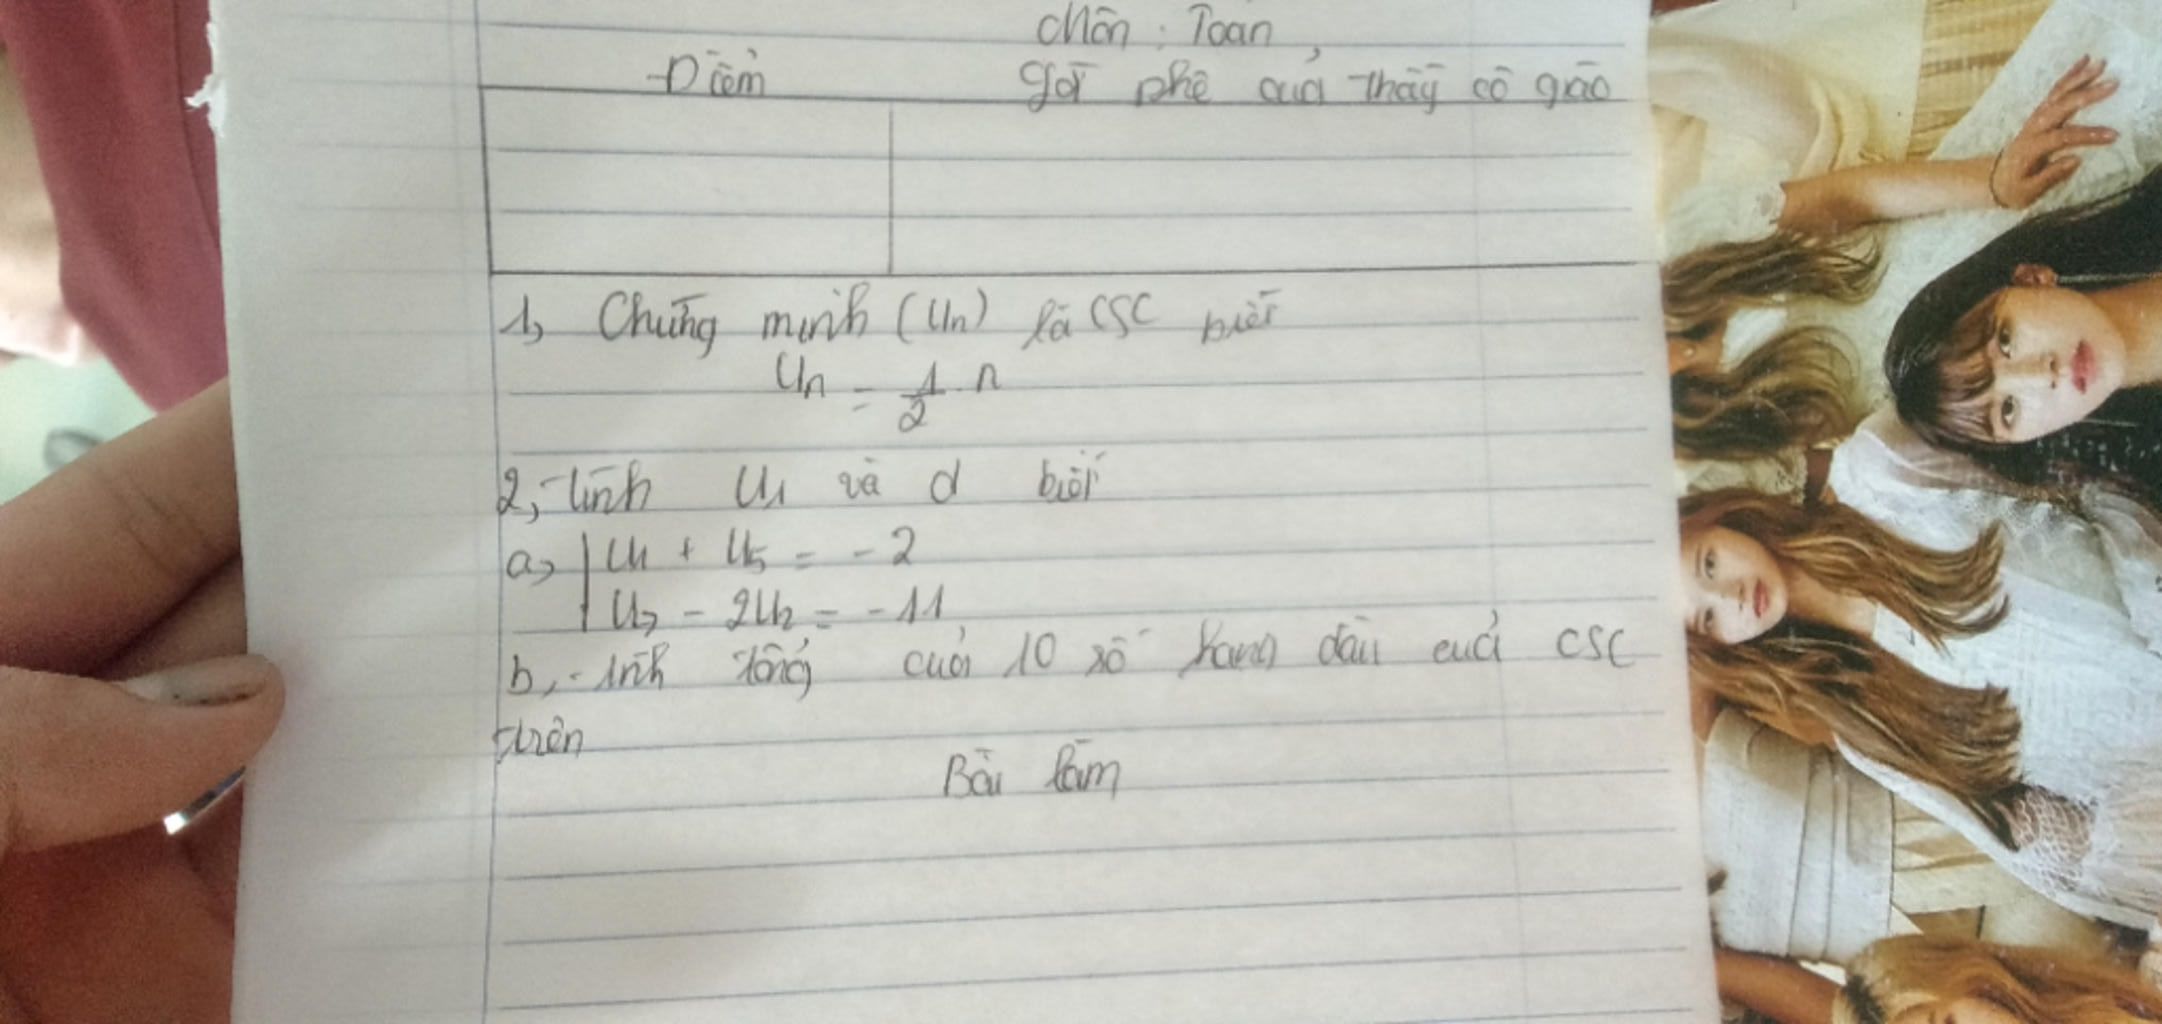 Môn : Toán
Điểm Lời phê của thầy cô giáo
1, Chứng minh (Un) là CSC biết
Un = 1/2 . n
2, Tính U1 và d biết
a, | U1 + U5 = - 2
| U7 - 2U2 = - 11
b, Tính tổng của 10 số hạng đầu của CSC
trên
Bài làm